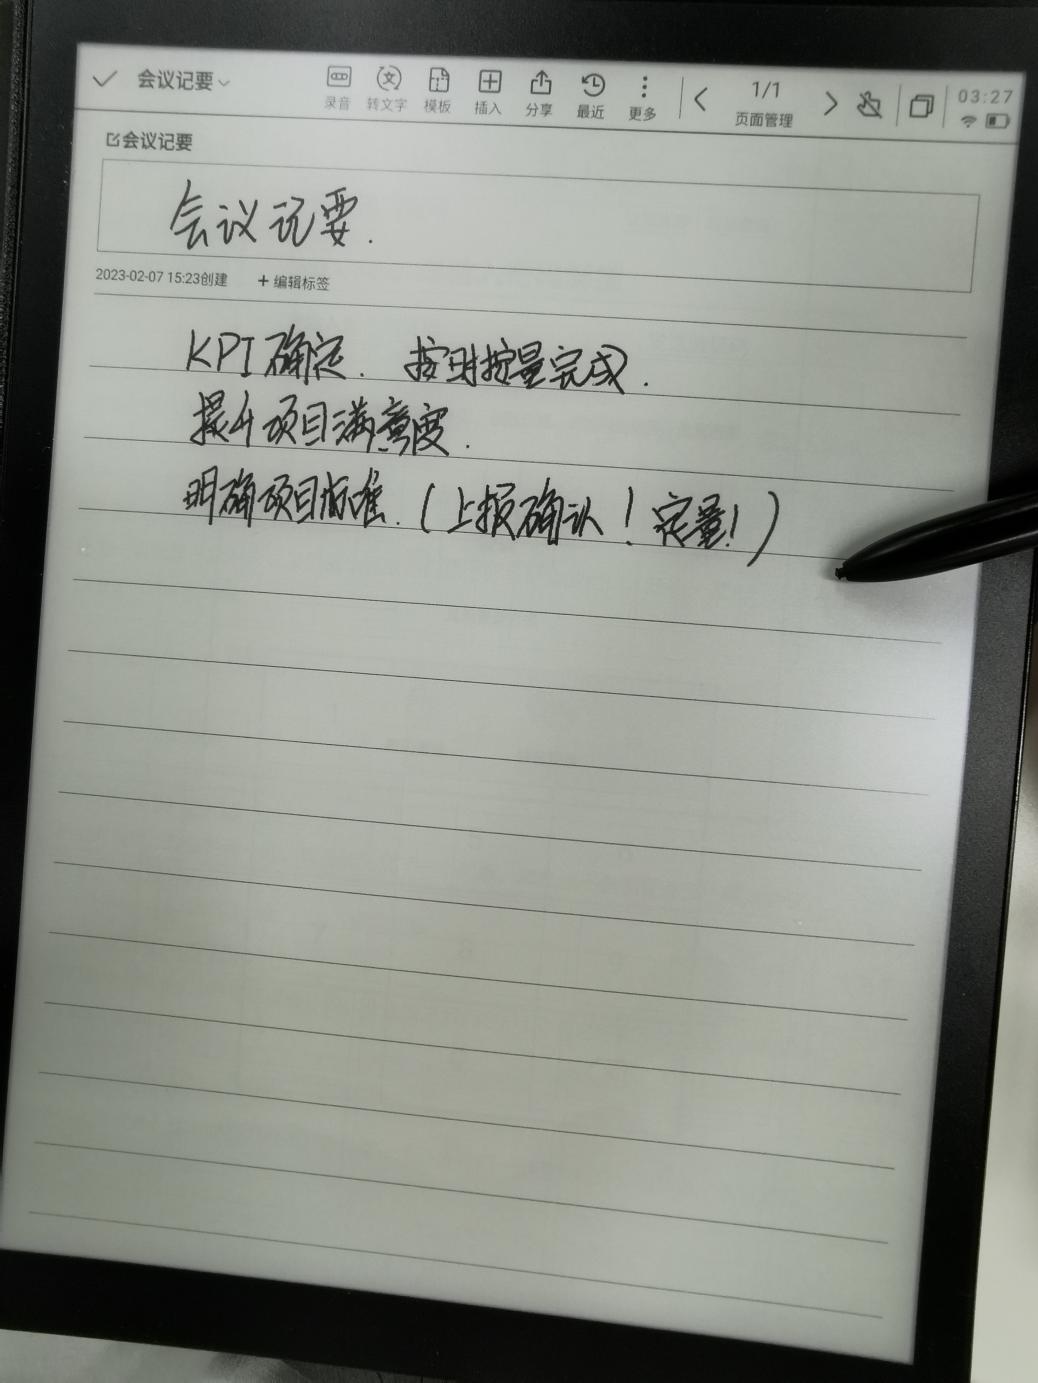 会议记要
录音 转文字 模板 插入 分享 最近 更多
1/1
页面管理
03:27
会议记要
会议记要.
2023-02-07 15:23创建 + 编辑标签
KPI确定. 按时按量完成.
提升项目满意度.
明确项目标准.(上报确认!定量!)